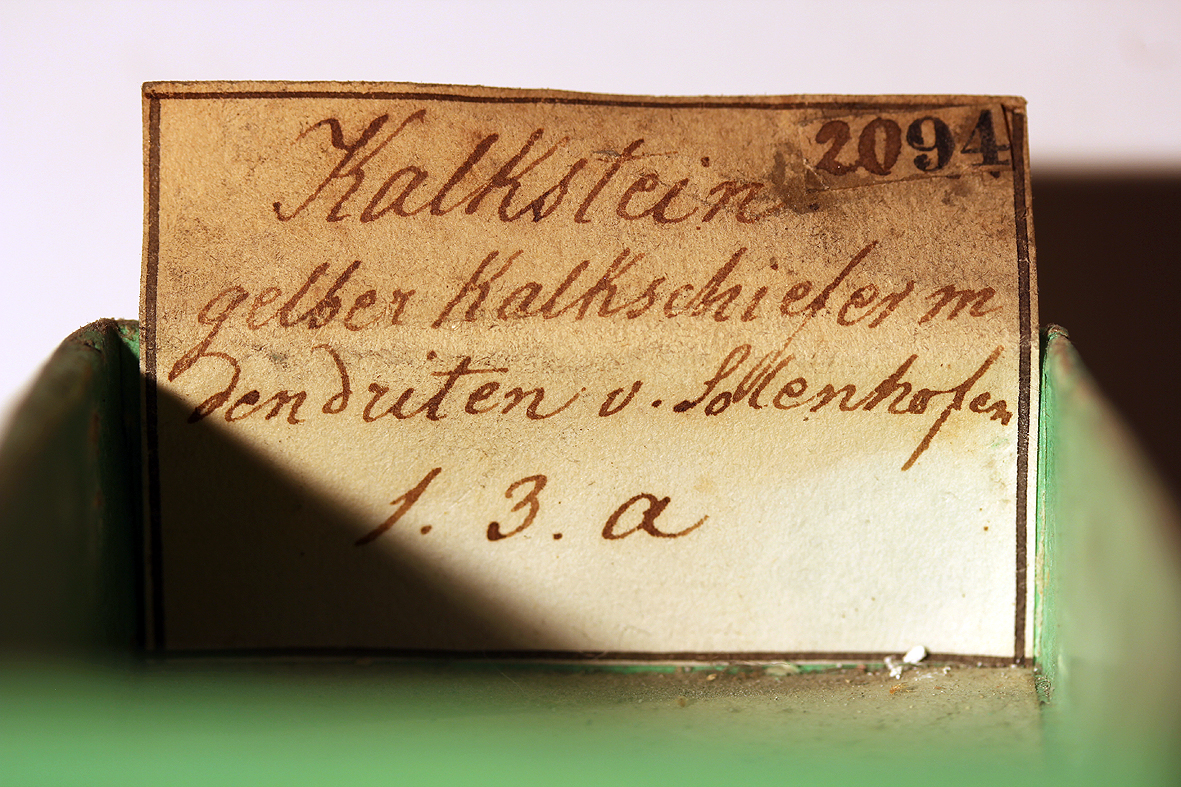 2094
Kalkstein
gelber Kalkschiefer m
dendriten v. Sollenhofen
1. 3. a